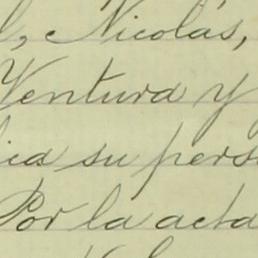 l, Nicolás,
Ventura y
ica su pers
Por la acta